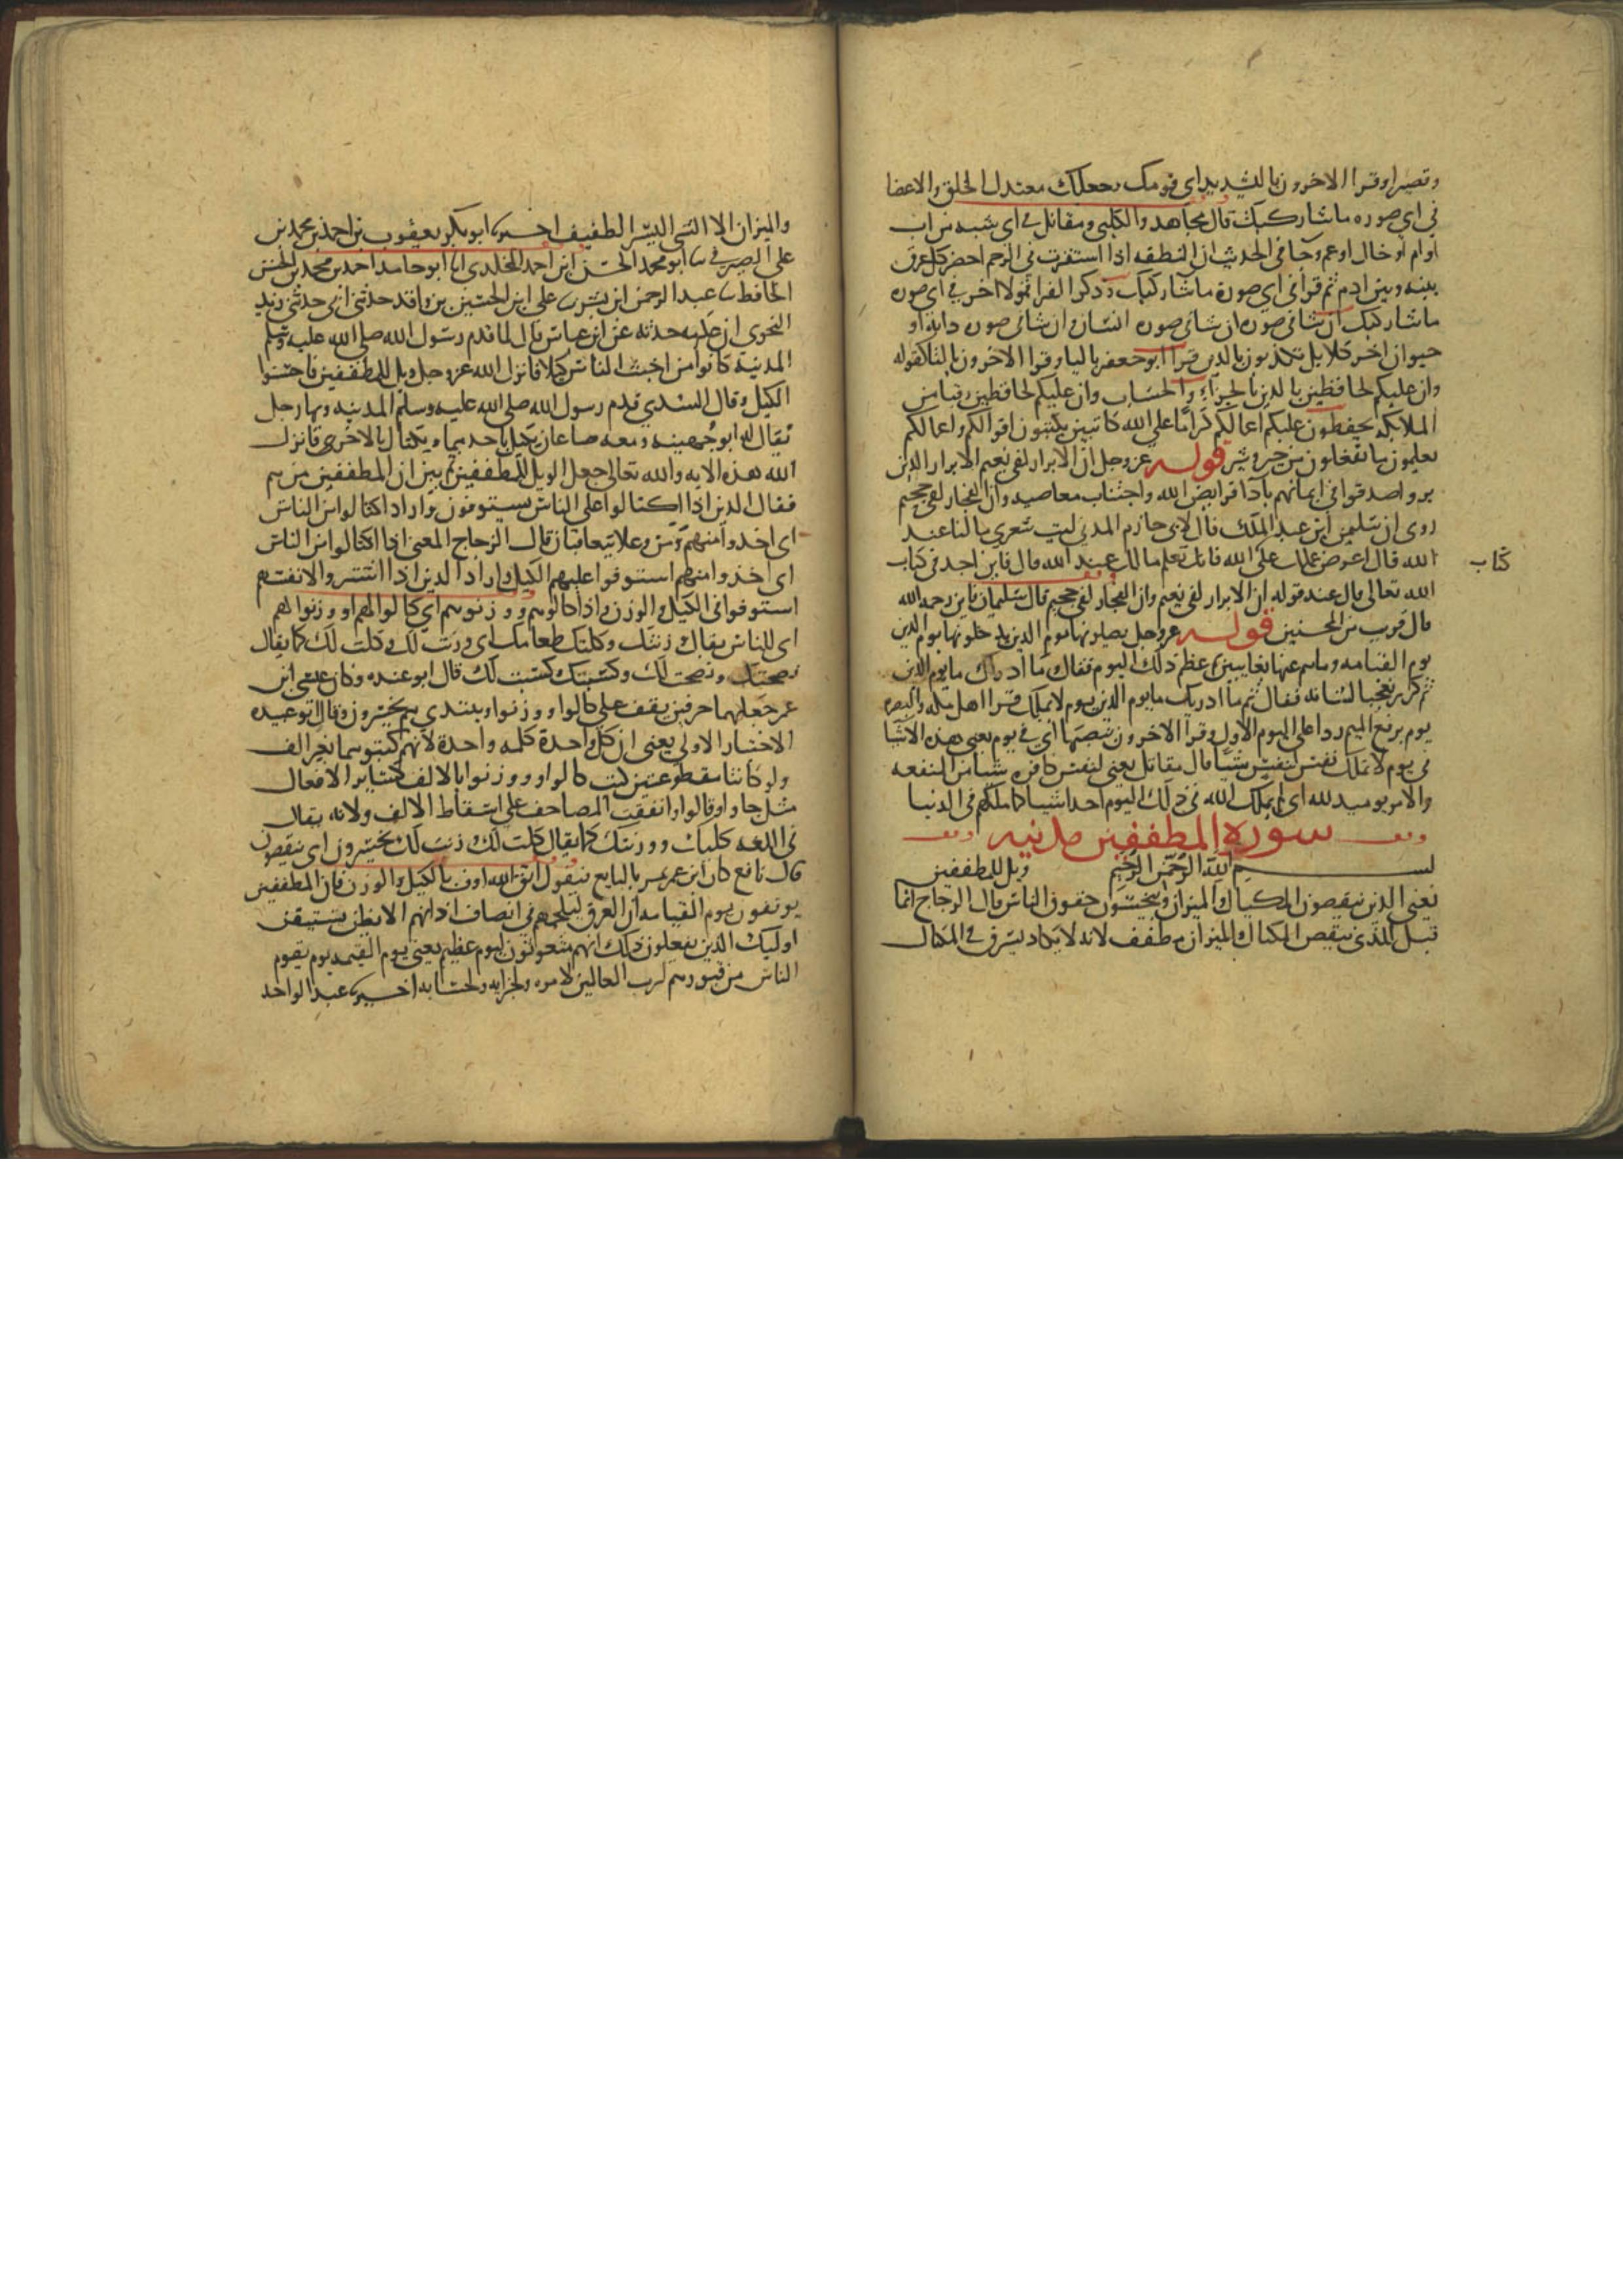 وقصيرا وقرا الاخرون بالتشديد اي قومك وجعلك معتدل الخلق والاعضا
في اي صوره ما شا ركبك قال مجاهد والكلبي ومقاتل في اي شبه من اب
او ام او خال او عم وجا في الحديث ان النطفه اذا استقرت في الرحم احضر كل عرق
بينه وبين ادم ثم قرا في اي صورة ما شا ركبك وذكر الفرا قولا اخر في اي صوره
ما شا ركبك ان شا في صوره ان شا في صوره انسان وان شا في صوره دابه او
حيوان اخر كلا بل تكذبون بالدين قرا ابو جعفر باليا وقرا الاخرون بالتا لقوله
وان عليكم لحافظين بالدين بالجزاء والحساب وان عليكم لحافظين رقبا من
الملايكه يحفظون عليكم اعمالكم كراما علي الله كاتبين يكتبون اقوالكم واعمالكم
يعلمون ما تفعلون من خير وشر قوله عز وجل ان الابرار لفي نعيم الابرار الذين
بروا صدقوا في ايمانهم بآدا فرايض الله واجتناب معاصيه وان الفجار لفي جحيم
روي ان سليمن ابن عبد الملك قال لابي حازم المدني ليت شعري ما لنا عند
الله قال اعرض عملك علي كتاب الله فانك تعلم ما لك عند الله قال فاين اجد في كتاب
الله تعالي قال عند قوله ان الابرار لفي نعيم وان الفجار لفي جحيم قال سليمان فاين رحمه الله
قال قريب من المحسنين قوله عز وجل يصلونها يوم الدين يدخلونها يوم الدين
يوم القيامه وما هم عنها بغايبين ثم عظم ذلك اليوم فقال وما ادراك ما يوم الدين
ثم كرر تعجبا لشانه فقال ثم ما ادريك ما يوم الدين يوم لا تملك قرا اهل مكه والبصره
يوم برفع الميم ردا علي اليوم الاول وقرا الاخرون بنصبها اي في يوم يعني هذه الاشيا
في يوم لا تملك نفس لنفس شيئا قال مقاتل يعني لنفس كافره شيا من المنفعه
والامر يوميد لله اي لم يملك الله في ذلك اليوم احدا شيا كما ملكهم في الدنيا
سورة المطففين مدنيه
بسم الله الرحمن الرحيم ويل للمطففين
يعني الذين ينقصون المكيال والميزان ويبخسون حقوق الناس قال الزجاج انما
قيل للذي ينقص المكيال والميزان مطفف لانه لا يكاد يسرق في المكيال
كتاب
والميزان الا الشي اليسير الطفيف اخبرنا ابو بكر يعقوب بن احمد بن محمد بن
علي الصيرفي ثنا ابو محمد الحسن ابن احمد المخلدي انا ابو حامد احمد بن محمد بن الحسن
الحافظ ثنا عبد الرحمن ابن بشر ثنا علي ابن الحسين بن واقد حدثني ابي حدثني يزيد
النحوي ان عكرمه حدثه عن ابن عباس قال لما قدم رسول الله صلي الله عليه وسلم
المدينة كانوا من اخبث الناس كيلا فانزل الله عز وجل ويل للمطففين فاحسنوا
الكيل وقال السدي قدم رسول الله صلي الله عليه وسلم المدينه وبها رجل
يقال له ابو جهينه ومعه صاعان يكيل باحدهما ويكتال بالاخري فانزل
الله هذه الايه والله تعالي جعل الويل للمطففين ثم بين ان المطففين من هم
فقال الذين اذا اكتالوا علي الناس يستوفون واراد اذا اكتالوا من الناس
اي اخذوا منهم ومن وعلا يتعاقبان قال الزجاج المعني اذا اكتالوا من الناس
اي اخذوا منهم استوفوا عليهم الكيل واراد الذين اذا اشتروا لانفسهم
استوفوا في الكيل والوزن واذا كالوهم او وزنوهم اي كالوا لهم او وزنوا لهم
اي للناس يقال وزنتك وكلتك طعامك اي وزنت لك وكلت لك كما يقال
نصحتك ونصحت لك وكسبتك وكسبت لك قال ابو عبيده وكان عيسي ابن
عمر يجعلهما حرفين يقف علي كالوا ووزنوا ويبتدي هم يخسرون وقال ابو عبيده
الاختيار الاولي يعني ان كل واحدة كلمه واحدة لانهم كتبوهما بغير الف
ولو كانتا مقطوعتين لكتب كالوا ووزنوا بالالف كساير الافعال
مثل جاوا وقالوا واتفقت المصاحف علي اسقاط الالف ولانه يقال
في اللغه كلتك ووزنتك كما يقال كلت لك وزنت لك يخسرون اي ينقصون
قال نافع كان ابن عمر يمر بالبايع فيقول اتق الله اوف بالكيل والوزن فان المطففين
يوقفون يوم القيامه ان العرق ليلجمهم في انصاف اذانهم الا يظن يستيقن
اوليك الذين يفعلون ذلك انهم مبعوثون ليوم عظيم يعني يوم القيمه يوم يقوم
الناس من قبورهم لرب العالمين لامره ولجزايه ولحسابه اخبرنا عبد الواحد